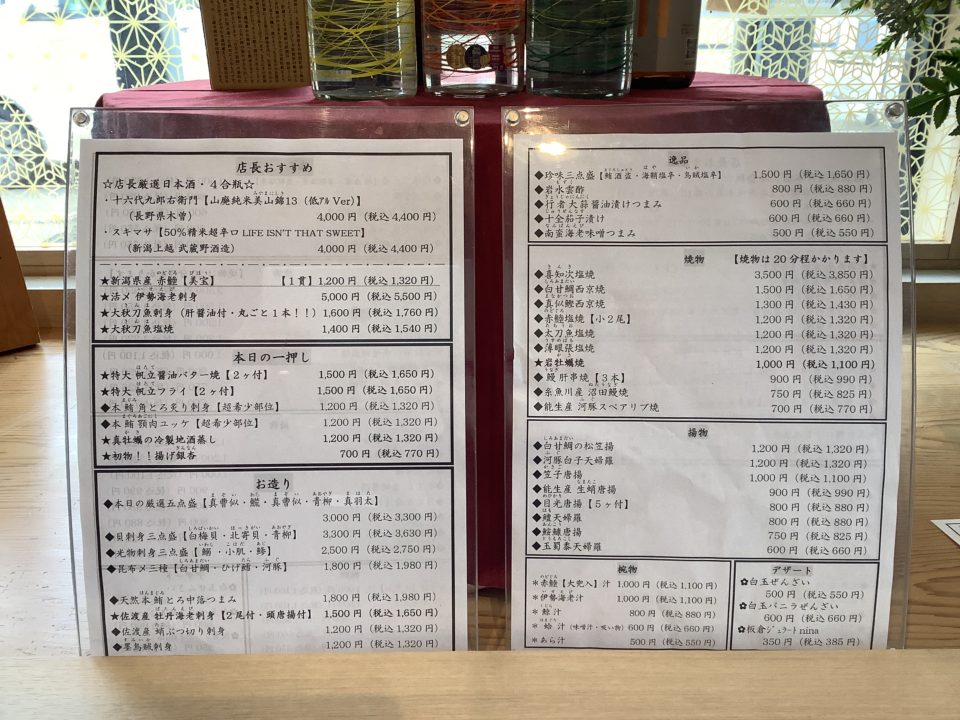 店長おすすめ
☆店長厳選日本酒・4合瓶☆
・十六代九郎右衛門【山廃純米美山錦13(低ｱﾙ Ver)】
(長野県木曽) 4,000円(税込4,400円)
・スキマサ【50%精米超辛口 LIFE ISN'T THAT SWEET】
(新潟上越 武蔵野酒造) 4,000円(税込4,400円)
★新潟県産 赤鯥【美宝】 【1貫】1,200円(税込1,320円)
★活〆 伊勢海老刺身 5,000円(税込5,500円)
★大秋刀魚刺身(肝醤油付・丸ごと1本!!) 1,600円(税込1,760円)
★大秋刀魚塩焼 1,400円(税込1,540円)
本日の一押し
★特大 帆立醤油バター焼【2ヶ付】 1,500円(税込1,650円)
★特大 帆立フライ【2ヶ付】 1,500円(税込1,650円)
◆本鮪 角とろ炙り刺身【超希少部位】 1,200円(税込1,320円)
◆本鮪 顎肉ユッケ【超希少部位】 1,200円(税込1,320円)
★真牡蠣の冷製地酒蒸し 1,200円(税込1,320円)
★初物!!揚げ銀杏 700円(税込770円)
お造り
◆本日の厳選五点盛【真曹似・鰡・真曹似・青柳・真羽太】
3,000円(税込3,300円)
◆貝刺身三点盛【白梅貝・北寄貝・青柳】 3,300円(税込3,630円)
◆光物刺身三点盛【鰯・小肌・鯵】 2,500円(税込2,750円)
◆昆布〆三種【白甘鯛・ひげ鱈・河豚】 1,800円(税込1,980円)
◆天然本鮪とろ中落つまみ 1,800円(税込1,980円)
★佐渡産 牡丹海老刺身【2尾付・頭唐揚付】 1,500円(税込1,650円)
◆佐渡産 蛸ぶつ切り刺身 1,200円(税込1,320円)
◆墨烏賊刺身 1,200円(税込1,320円)
逸品
◆珍味三点盛【鮪酒盗・海鞘塩辛・烏賊塩辛】 1,500円(税込1,650円)
◆岩水雲酢 800円(税込880円)
◆行者大蒜醤油漬けつまみ 600円(税込660円)
◆十全茄子漬け 600円(税込660円)
◆南蛮海老味噌つまみ 500円(税込550円)
焼物 【焼物は20分程かかります】
◆喜知次塩焼 3,500円(税込3,850円)
◆白甘鯛西京焼 1,500円(税込1,650円)
◆真似鰹西京焼 1,300円(税込1,430円)
◆赤鯥塩焼【小2尾】 1,200円(税込1,320円)
◆太刀魚塩焼 1,200円(税込1,320円)
◆薄眼張塩焼 1,200円(税込1,320円)
★岩牡蠣焼 1,000円(税込1,100円)
◆鰻肝串焼【3本】 900円(税込990円)
◆糸魚川産 沼田鰻焼 750円(税込825円)
◆能生産 河豚スペアリブ焼 700円(税込770円)
揚物
◆白甘鯛の松笠揚 1,200円(税込1,320円)
◆河豚白子天婦羅 1,200円(税込1,320円)
◆笠子唐揚 1,000円(税込1,100円)
◆能生産 生蛸唐揚 900円(税込990円)
◆目光唐揚【5ヶ付】 800円(税込880円)
◆鱧天婦羅 800円(税込880円)
◆鮟鱇唐揚 750円(税込825円)
◆玉蜀黍天婦羅 600円(税込660円)
椀物
＊赤鯥【大兜入】汁 1,000円(税込1,100円)
＊伊勢海老汁 1,000円(税込1,100円)
＊鯨汁 800円(税込880円)
＊蛤汁(味噌汁・吸い物) 600円(税込660円)
＊あら汁 500円(税込550円)
デザート
✿白玉ぜんざい
500円(税込550円)
✿白玉バニラぜんざい
600円(税込660円)
✿板倉ｼﾞｪﾗｰﾄ nina
350円(税込385円)